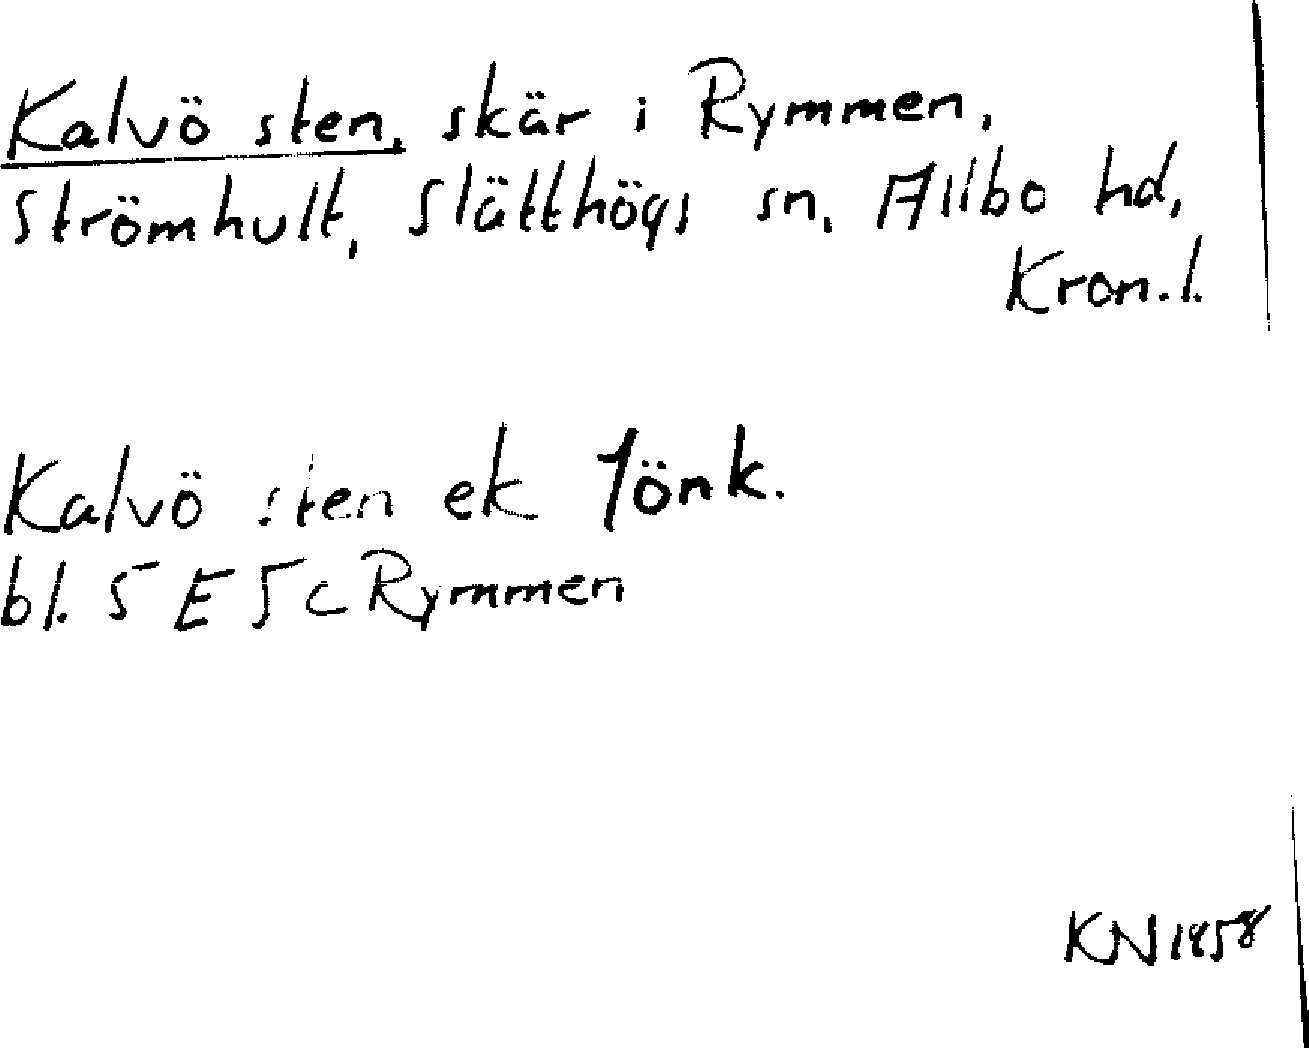 Kalvö sten, skär i Rymmen,
Strömhult, Slätthögs sn, Allbo hd,
Kron.l.
Kalvö sten ek Jönk.
bl. 5 E 5 c Rymmen
KN 1958